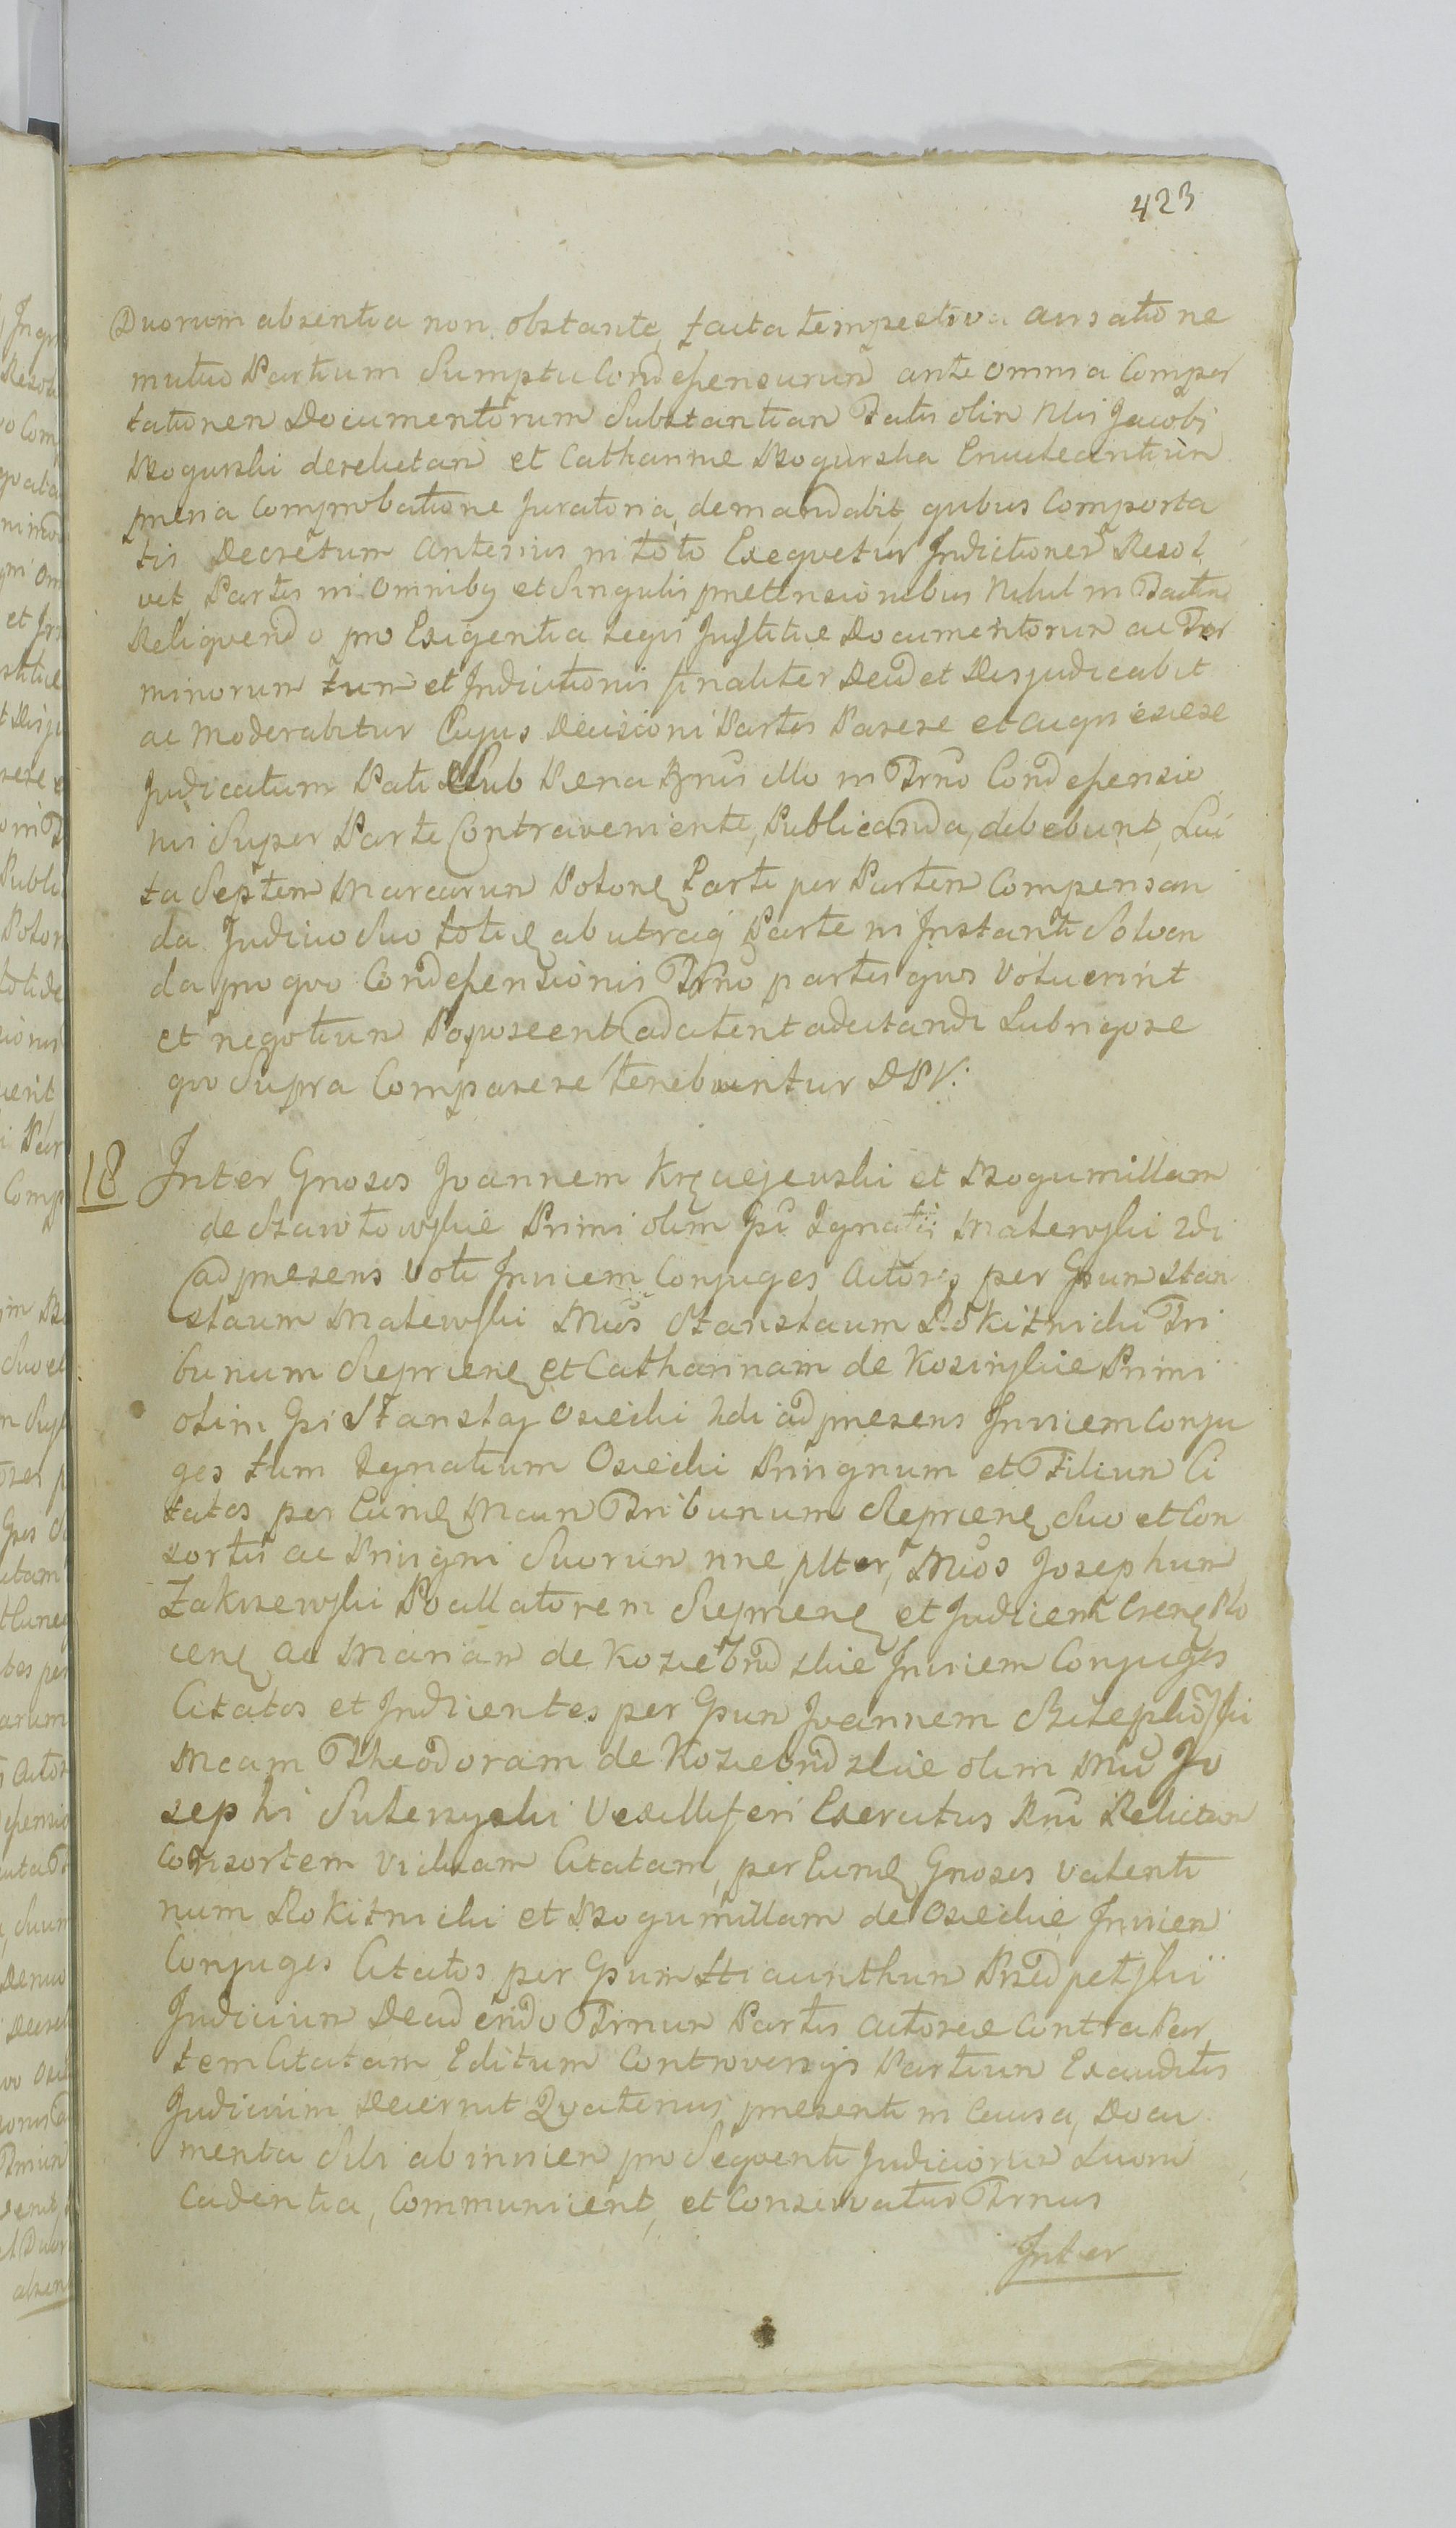 423
Duorum absentia non obstante, facta tempestiva avisatione
mutuo Partium Sumptu Condescensurum ante omnia Compor
tationem Documentorum Substantiam Fatis olim Nlis Jacobi
Rogurski derelictam et Catharinae Rogurska Enucleantium
previa Comprobatione Juratoria, demandabit, quibus Comporta
tis Decretum Anterius in toto Exequetur Indictionem Resol
vet, Partes in Omnibq et Singulis praetensionibus Nihil in
Reliquendo pro Exigentia Legis Justitiae Documentorum ac Ter
minorum tum et Indictionis finaliter Decid et Disjudicabit
ac Moderabitur Cujus Decisioni Partes Parere et acquiescere
Judicatum Pati Sub Paena Bnis illo in Trno Condescensio
nis Super Parte Contraveniente, Publicanda, debebunt, Lui
ta Septem Marcarum Polone Parti per Partem Compensan
da Judicio Suo toties ab utraq Parte in Instanti Solven
da pro quo Condescensionis Trno partes qvo Voluerint
et negotium Poposcent ad atentad citandi
qvo Supra Comparere tenebuntur DPV.
18 Inter Gnosos Joannem Krzaejewski et Bogumillam
de Szawłowskie Primi olim Gsi Ignatii Malewski 2di
ad presens Voti Invicem Conjuges Actores per Gsum Stani
slaum Malewski Mcos Stanislaum Rokitnicki Tri
bunum Sieprcens et Catharinam de Kosinskie Primi
olim Gsi Stanislai Osiecki 2di ad presens Invicem Conju
ges tum Ignatium Osiecki Privignum et Filium Ci
tatos per Eund Mcum Tribunum Sieprcens Suo et Con
sortis ac Privigni Suorum nne, plter, Mcos Josephum
Zakrzewski Pocillatorem Sieprcens et Judicem Csens Plo
cens ac Mariam de Koziebrodzkie Invicem Conjuges
Citatos et Indicentes per Gsum Joannem
Mcam Theodoram de Koziebrodzkie olim Mci Jo
sephi Vexilliferi Exercitus Rni Relictam
Consortem Viduam Citatam, per Eund Gnosos Valenti
num Rokitnicki et Bogumillam de Osieckie Invicem
Conjuges Citatos per Gsum Hiacinthum Przedpelski
Judicium Decidendo Trnum Partis Actoreae Contra Par
tem Citatam Editum Controversijs Partium Exauditis
Judicium Decernit Quatenus presenti in Causa, Docu
menta Sibi ab invicem pro Sequenti Judiciorum Suorum
Cadentia, Communicent, et Conservatus Trnus
Inter